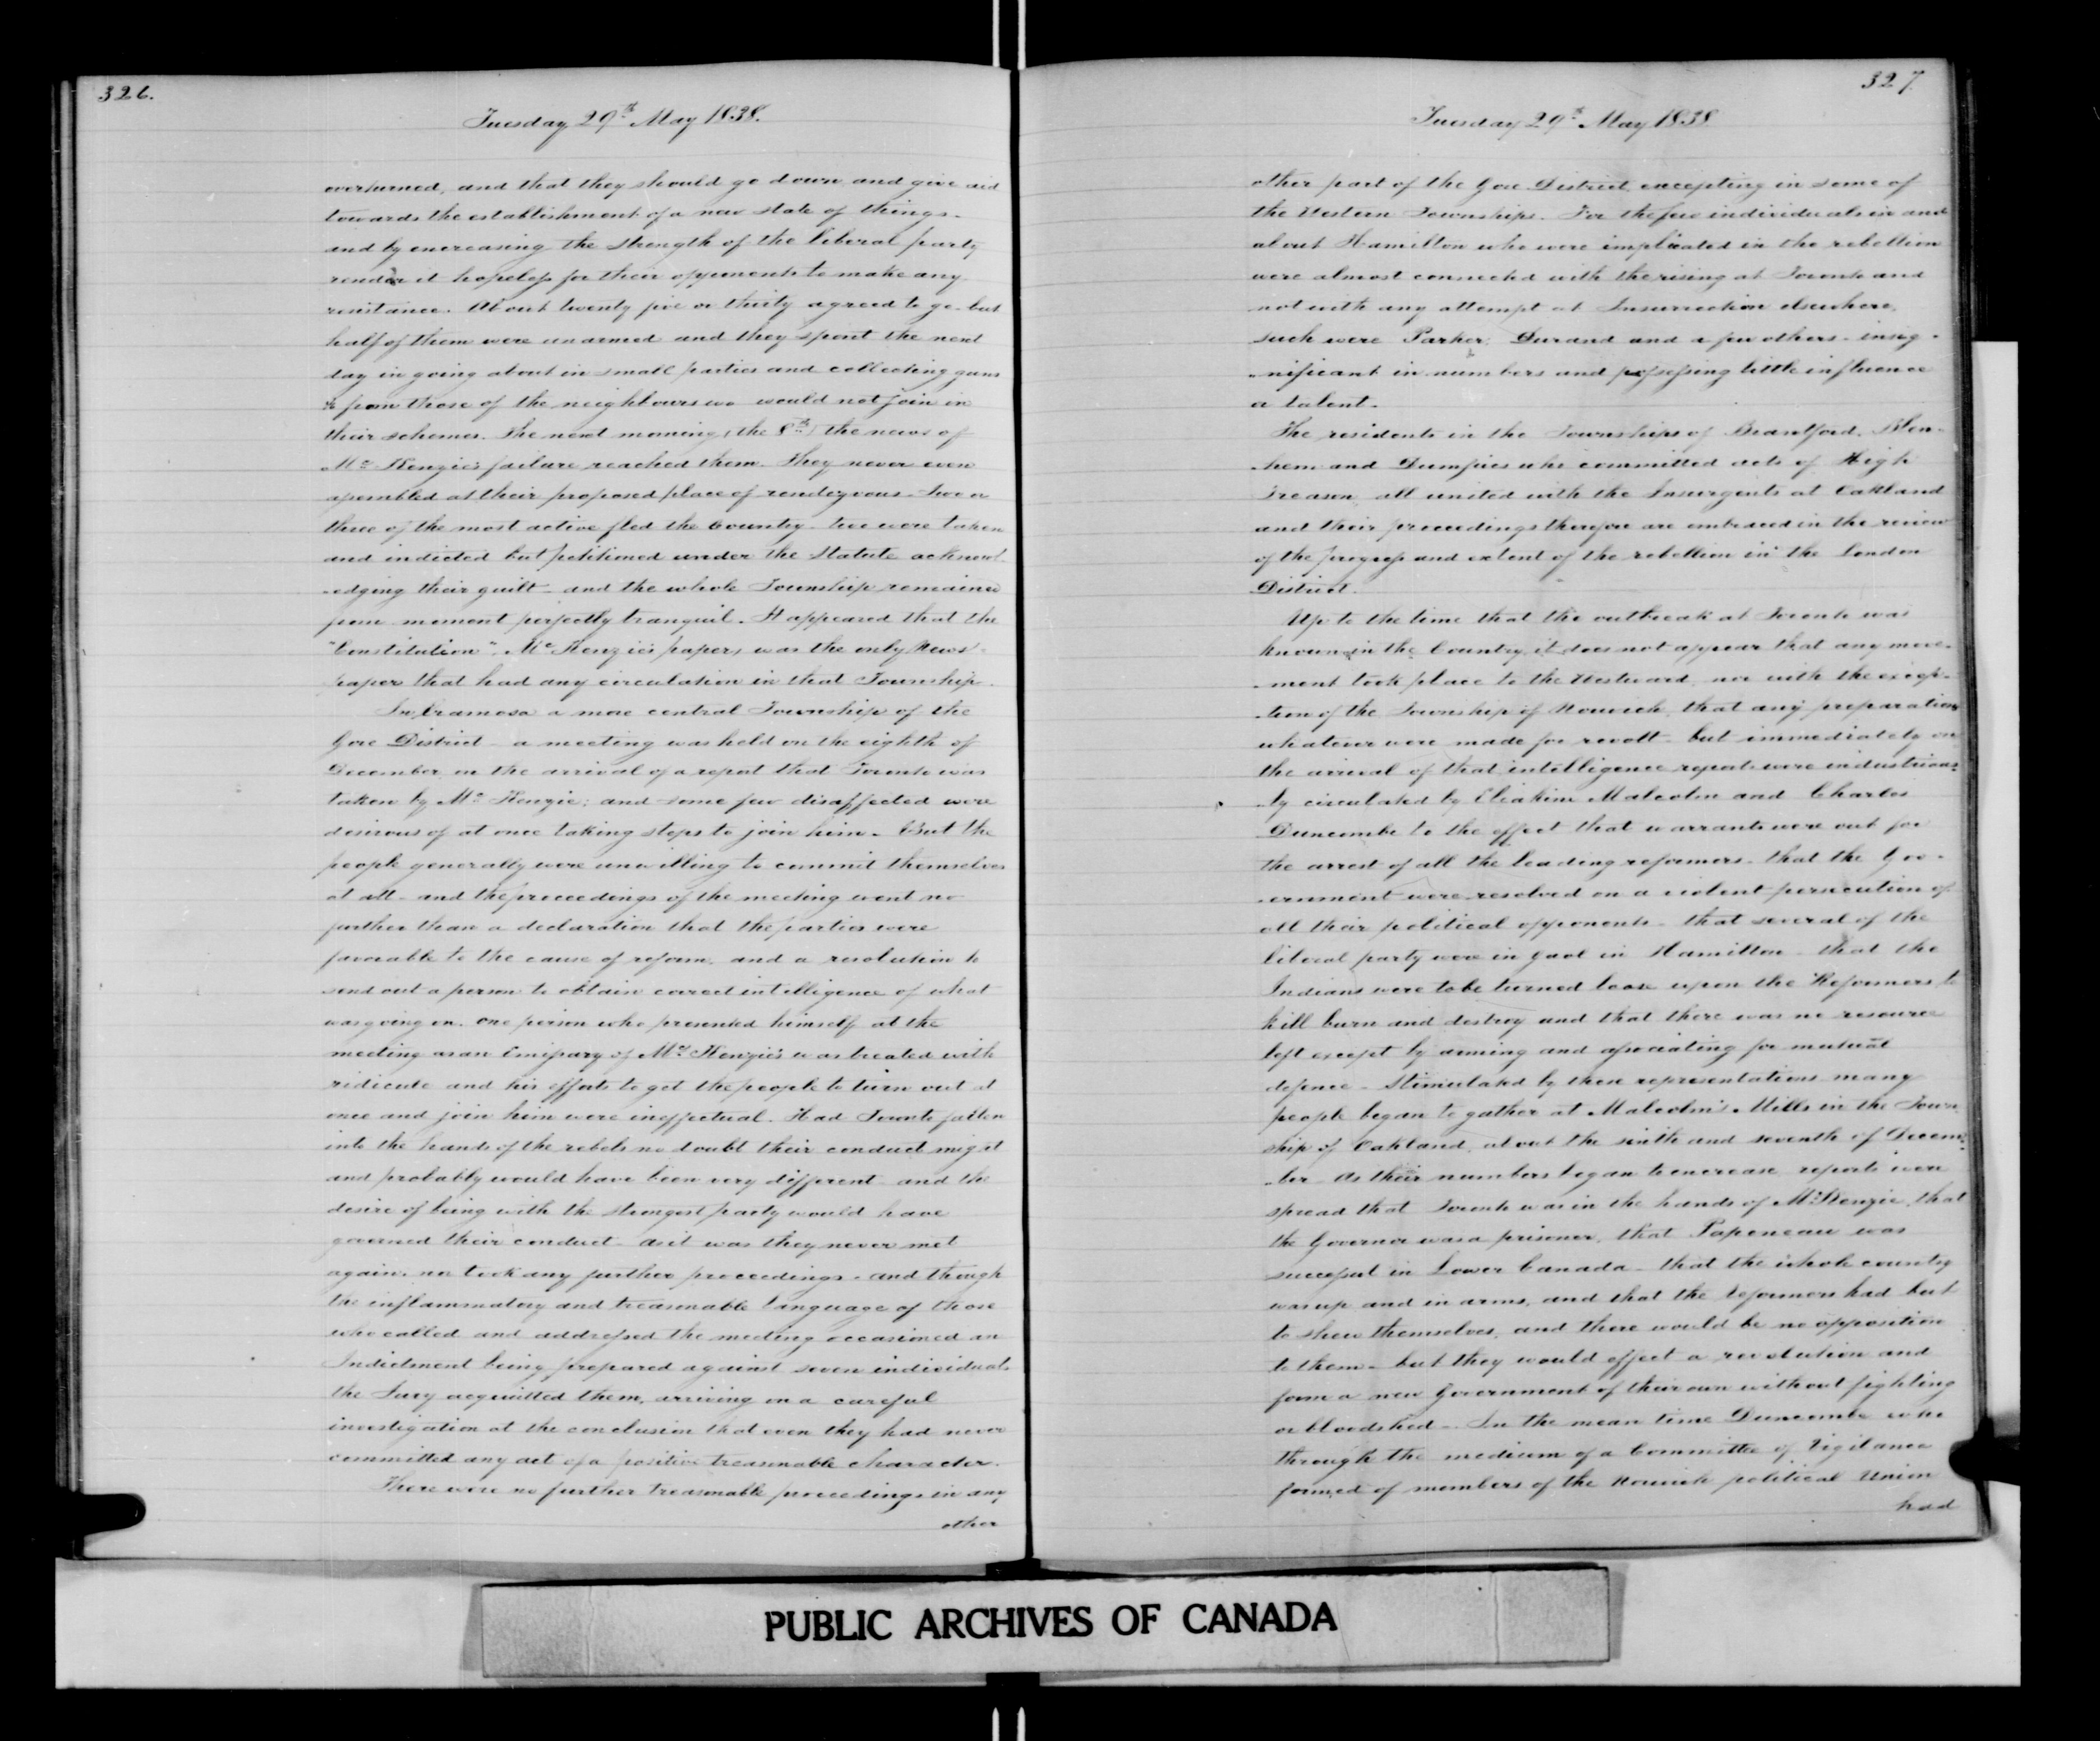 326.
Tuesday 29th May 1838.
overturned, and that they should go down and give aid
towards the establishment of a new state of things -
and by encreasing the strength of the liberal party
render it hopeless for their opponents to make any
resistance. About twenty five or thirty agreed to go - but
half of them were unarmed and they spent the next
day in going about in small parties and collecting guns
&c from those of the neighbours who would not join in
their schemes. The next morning, (the 8th) the news of
McKenzie's failure reached them. They never even
assembled at their proposed place of rendezvous - Two or
three of the most active fled the Country - two were taken
and indicted but petitioned under the Statute acknowl-
-edging their guilt - and the whole Township remained
from moment perfectly tranquil. It appeared that the
"Constitution", McKenzie's paper, was the only News-
paper that had any circulation in that Township.
In Eramosa a more central Township of the
Gore District - a meeting was held on the eighth of
December, on the arrival of a report that Toronto was
taken by McKenzie; and some few disaffected were
desirous of at once taking steps to join him - But the
people generally were unwilling to commit themselves
at all - and the proceedings of the meeting went no
further than a declaration that the parties were
favorable to the cause of reform, and a resolution to
send out a person to obtain correct intelligence of what
was going on. One person who presented himself at the
meeting as an Emissary of McKenzie's was treated with
ridicule and his efforts to get the people to turn out at
once and join him were ineffectual. Had Toronto fallen
into the hands of the rebels no doubt their conduct might
and probably would have been very different - and the
desire of being with the strongest party would have
governed their conduct - as it was they never met
again, nor took any further proceedings - and though
the inflammatory and treasonable language of those
who called and addressed the meeting occasioned an
Indictment being prepared against seven individuals
the Jury acquitted them, arriving on a careful
investigation at the conclusion that even they had never
committed any act of a positive treasonable character.
There were no further treasonable proceedings in any
other
327
Tuesday 29th May 1838
other part of the Gore District, excepting in some of
the Western Townships. For the few individuals in and
about Hamilton who were implicated in the rebellion
were almost connected with the rising at Toronto and
not with any attempt at Insurrection elsewhere,
such were Parker, Durand and a few others - insig-
-nificant in numbers and possessing little influence
or talent.
The residents in the Townships of Brantford, Blen-
-hem and Dumfries who committed acts of High
Treason all united with the Insurgents at Oakland
and their proceedings therefore are embraced in the review
of the progress and extent of the rebellion in the London
District.
Up to the time that the outbreak at Toronto was
known in the Country, it does not appear that any move-
-ment took place to the Westward, nor with the excep-
-tion of the Township of Norwich, that any preparations
whatever were made for revolt - but immediately on
the arrival of that intelligence reports were industrious-
-ly circulated by Eliakim Malcolm and Charles
Duncombe to the effect that warrants were out for
the arrest of all the leading reformers - that the Gov-
-ernment were resolved on a violent persecution of
all their political opponents - that several of the
liberal party were in gaol in Hamilton - that the
Indians were to be turned loose upon the Reformers to
kill burn and destroy and that there was no resource
left except by arming and associating for mutual
defence - Stimulated by these representations many
people began to gather at Malcolm's Mills in the Town-
ship of Oakland, about the sixth and seventh of Decem-
-ber - As their numbers began to encrease, reports were
spread that Toronto was in the hands of McKenzie, that
the Governor was a prisoner, that Papeneau was
successful in Lower Canada - that the whole country
was up and in arms, and that the reformers had but
to shew themselves, and there would be no opposition
to them - but they would effect a revolution and
form a new Government of their own without fighting
or bloodshed - In the mean time Duncombe who
through the medium of a Committee of Vigilance
formed of members of the Norwich political Union
had
PUBLIC ARCHIVES OF CANADA